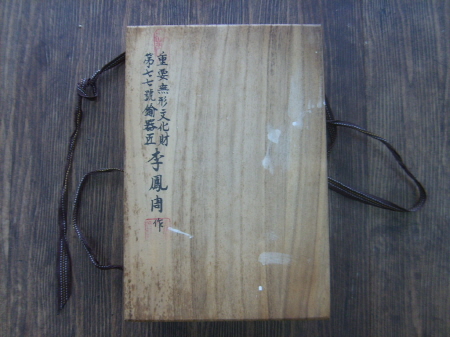 重要無形文化財
第七七號鍮器匠
李鳳周 作